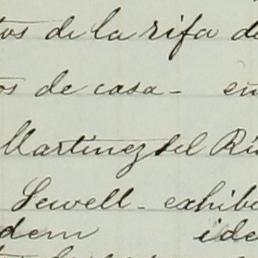 tos de la rifa de
os de casa - en
Martinez del Rí
Sewell - exhib
dem ide